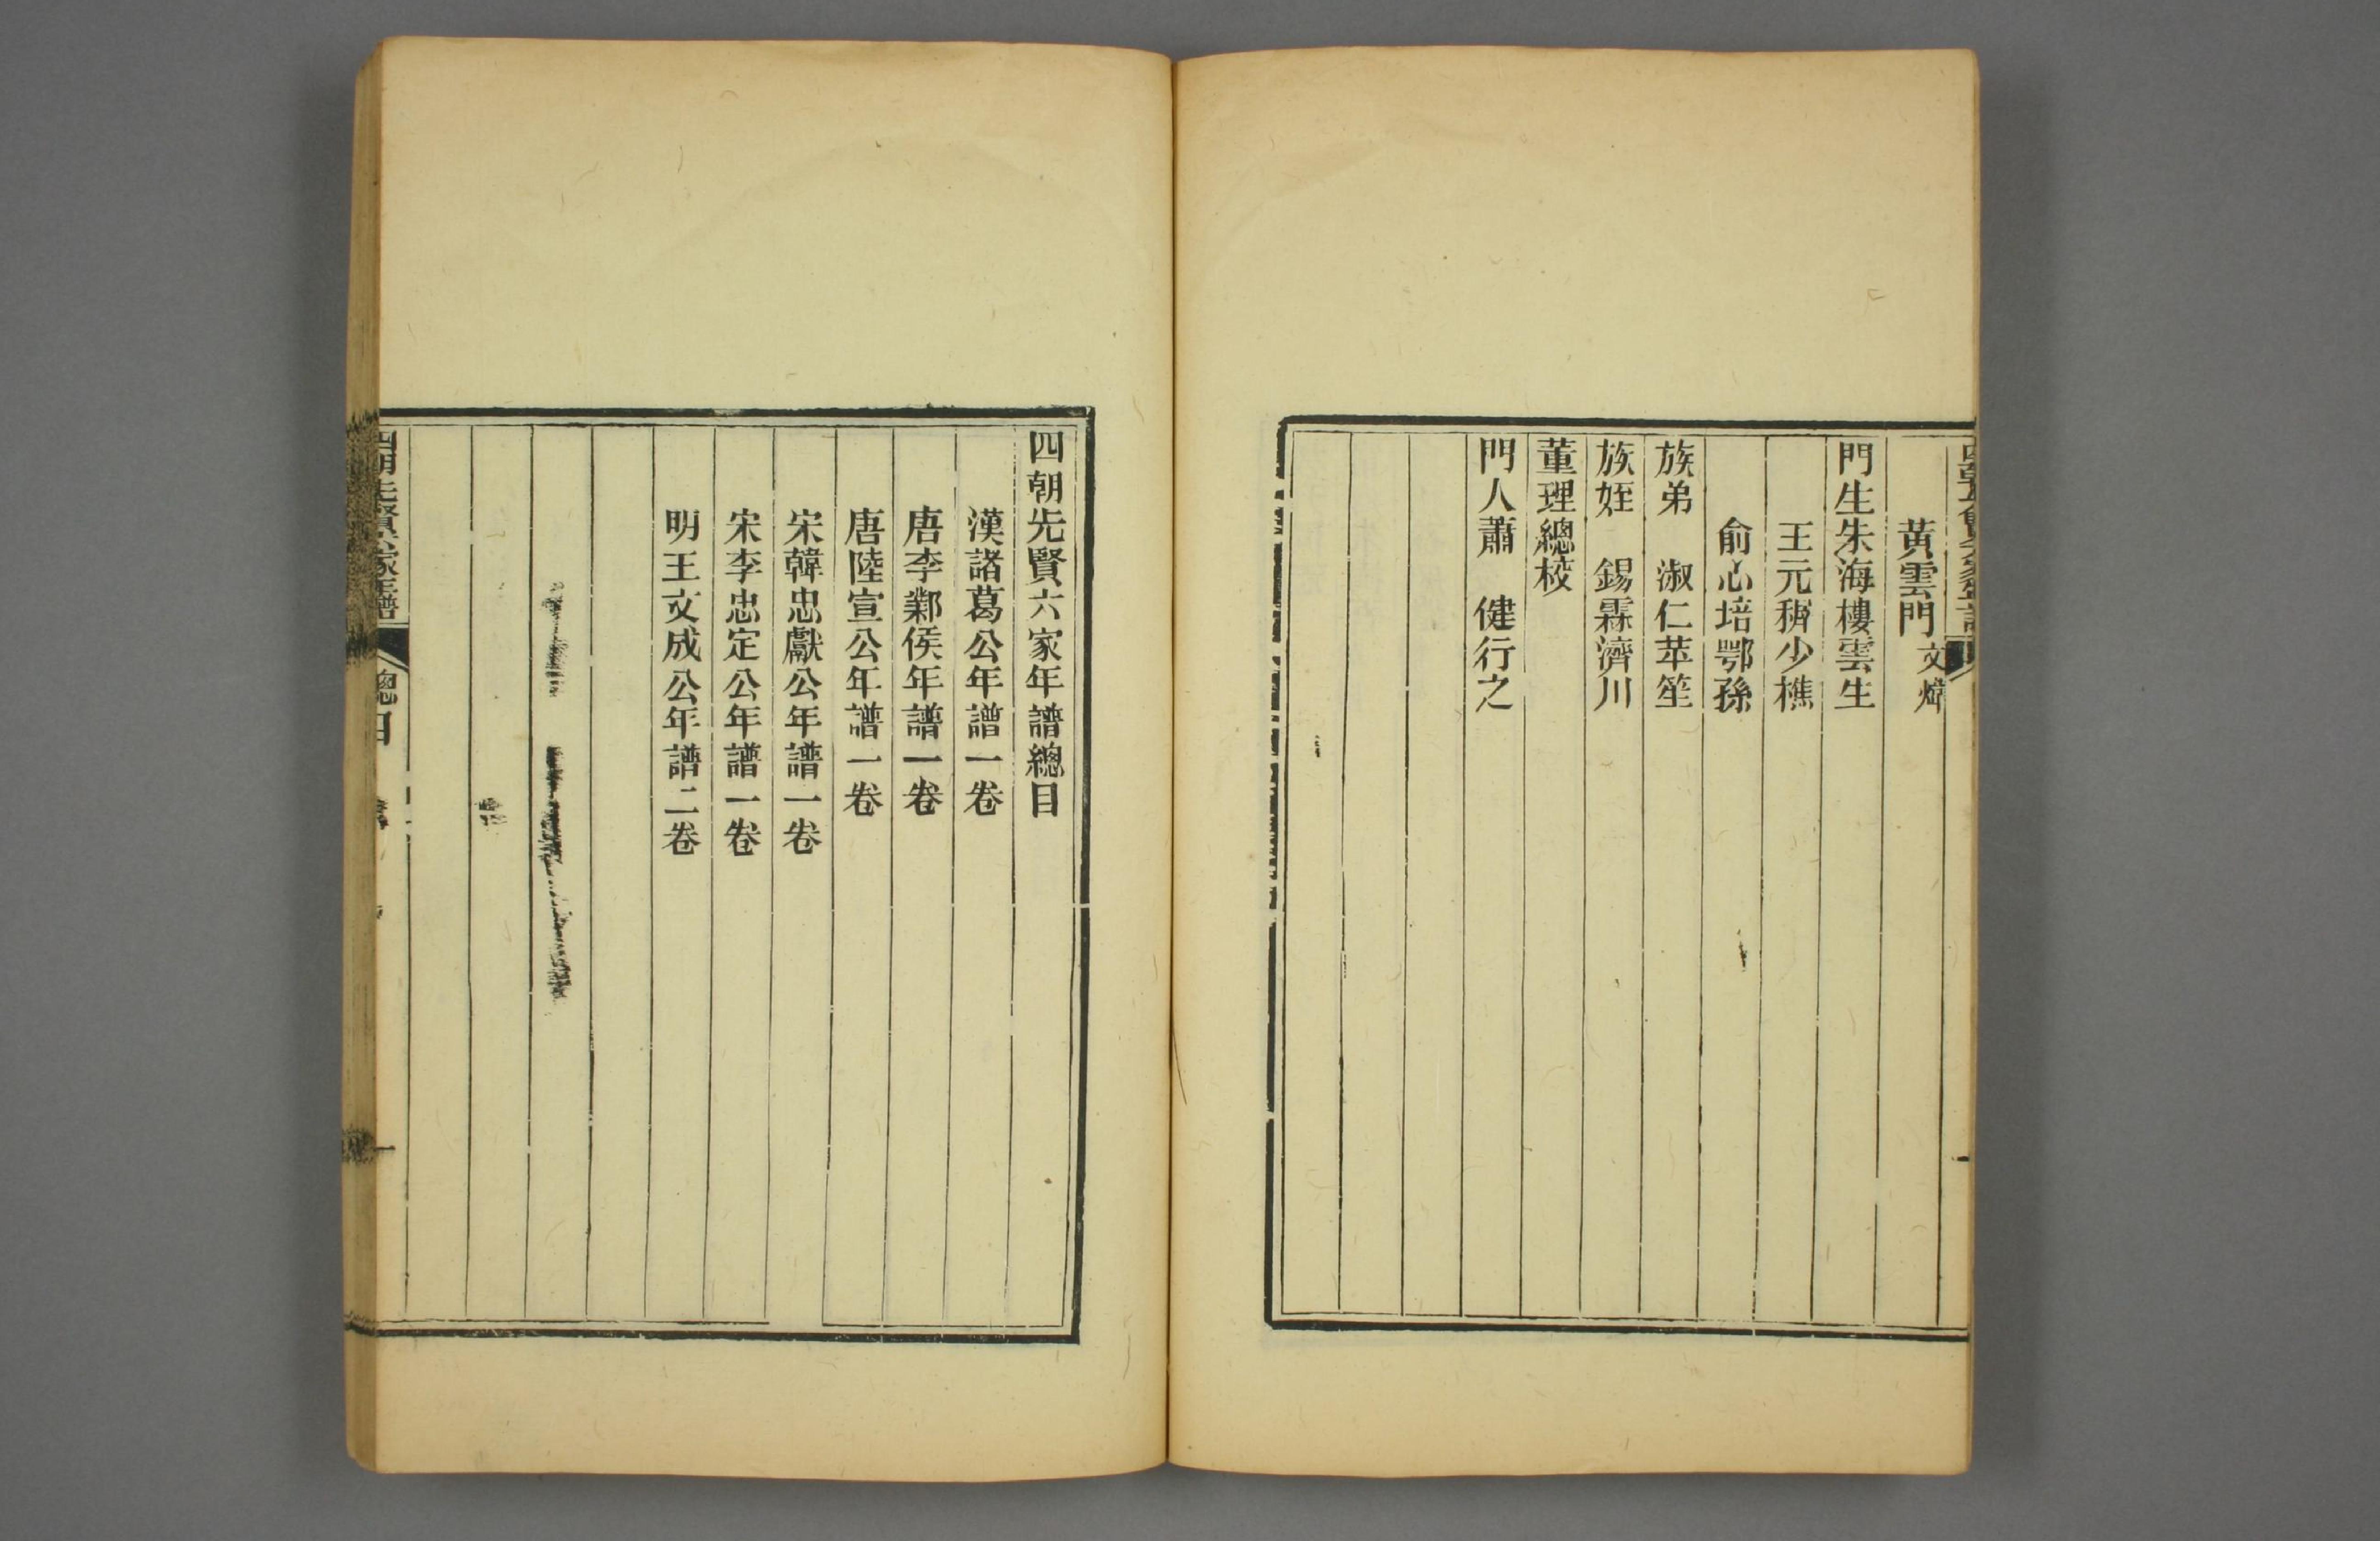 黃雲門文煒
門生朱海樓雲生
王元穉少樵
俞心培鄂孫
族弟　淑仁苹笙
族姪　錫霖濟川
董理總校
門人蕭　健行之
一
四朝先賢六家年譜總目
漢諸葛公年譜一卷
唐李鄴侯年譜一卷
唐陸宣公年譜一卷
宋韓忠獻公年譜一卷
宋李忠定公年譜一卷
明王文成公年譜二卷
四朝先賢六家年譜
總目
一